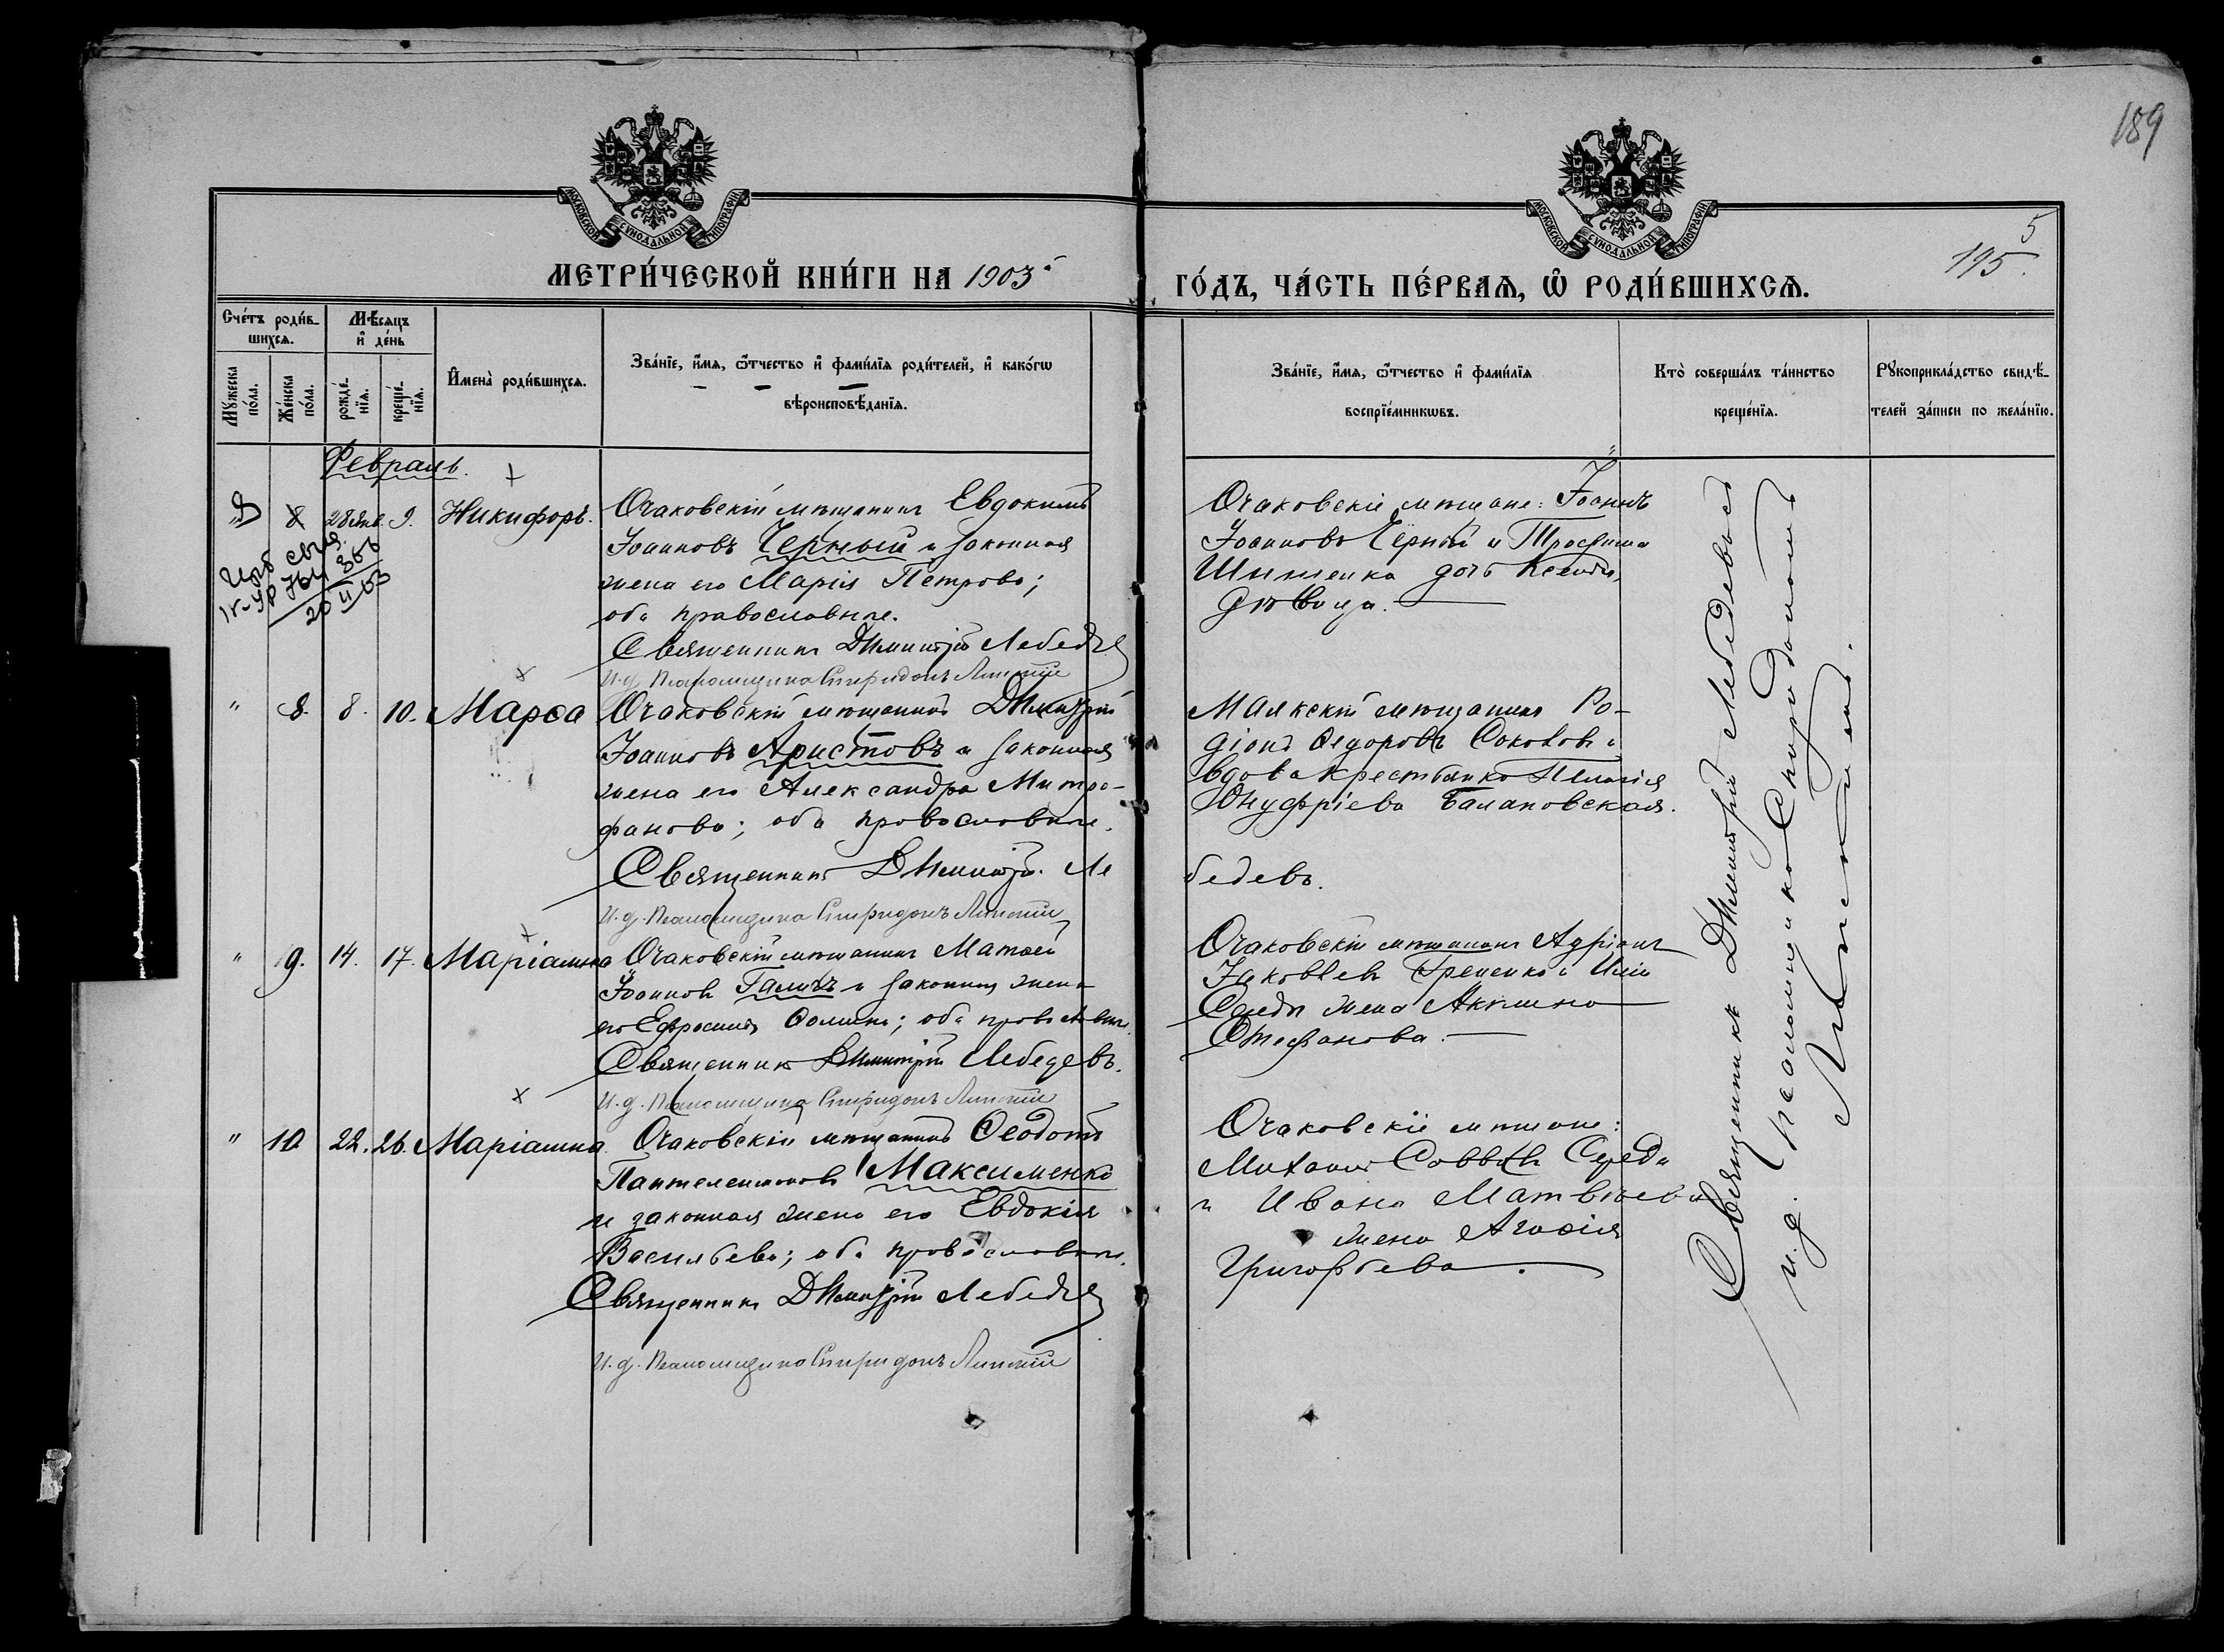 189
МОСКОВСКОЙ СѴНОДАЛЬНОЙ ТИПОГРАФІИ
МОСКОВСКОЙ СѴНОДАЛЬНОЙ ТИПОГРАФІИ
5
195.
МЕТРИ́ЧЕСКОЙ КНИ́ГИ НА 1903
ГО́ДЪ, ЧА́СТЬ ПЕ́РВАѦ, Ѡ҆ РОДИ́ВШИХСѦ.
Сче́тъ роди́в-
шихсѧ.
Мꙋ́жеска
по́ла.
Же́нска
по́ла.
Мѣ́сѧцъ
и҆ де́нь
рожде́-
нїѧ.
креще́-
нїѧ.
И҆мена̀ роди́вшихсѧ.
Зва́нїе, и҆́мѧ, ѻ҆́тчество и҆ фами́лїѧ роди́телей, и҆ како́гѡ
вѣроисповѣ́данїѧ.
Зва́нїе, и҆́мѧ, ѻ҆́тчество и҆ фами́лїѧ
воспрїе́мникѡвъ.
Кто̀ соверша́лъ та́инство
креще́нїѧ.
Рꙋкоприкла́дство свидѣ́-
телей за́писи по жела́нїю.
Февраль.
8 28 Янв. 9. Никифоръ.
20 II 03
Очаковскій мѣщанинъ Евдокимъ
Іоанновъ Черный и законная
жена его Марія Петрова;
оба православные.
Священникъ Димитрій Лебедев
И. д. Псаломщика Спиридонъ Липскій
Очаковскіе мѣщане: Іоаннъ
Іоанновъ Чёрный и Трофима
Шишенка дочь Ксенія,
дѣвица.
" 8. 8. 10. Марѳа
Очаковскій мѣщанинъ Димитрій
Іоанновъ Аристовъ и законная
жена его Александра Митро-
фанова; оба православные.
Священникъ Димитрій Ле
бедевъ.
И. д. Псаломщика Спиридонъ Липскій
Маякскій мѣщанинъ Ро-
діонъ Ѳедоровъ Соколовъ и
вдова крестьянка Пелагія
Онуфріева Балановская.
" 9. 14. 17. Маріамна
Очаковскій мѣщанинъ Матѳей
Іоанновъ Галичъ и законная жена
его Ефросинія Ѳомина; оба православные.
Священникъ Димитрій Лебедевъ.
И. д. Псаломщика Спиридонъ Липскій
Очаковскій мѣщанинъ Адріанъ
Іаковлевъ Греченко и Иліи
Середы жена Акилина
Стефанова.
" 10 22. 26. Маріамна.
Очаковскій мѣщанинъ Ѳеодотъ
Пантелеимоновъ Максименко
и законная жена его Евдокія
Васильева; оба православные.
Священникъ Димитрій Лебедев
И. д. Псаломщика Спиридонъ Липскій
Очаковскіе мѣщане:
Михаилъ Саввовъ Середа
и Ивана Матвѣева
жена Агаѳія
Григорьева.
Священникъ Димитрій Лебедевъ
и. д. псаломщика Спиридонъ
Липскій.